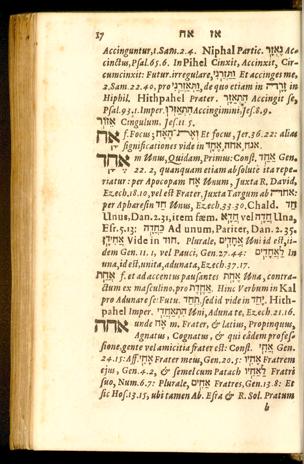 17 אז אח
Accinguntur, 1. Sam. 2. 4. Niphal Partic. נֶאְזָר Ac-
cinctus, Psal. 65. 6. In Pihel Cinxit, Accinxit, Cir-
cumcinxit: Futur. irregulare, וַתַּזְרֵנִי Et accinges me,
2. Sam. 22. 40, pro וַתְּאַזְּרֵנִי, de quo etiam in זָרָה in
Hiphil. Hithpahel Præter. הִתְאַזָּר Accingit se,
Psal. 93. 1. Imper. הִתְאַזְּרוּ Accingimini, Jes. 8. 9.
אֵזוֹר Cingulum. Jes. 11. 5.
אָח f. Focus; וְאֶת־הָאָח Et focus, Jer. 36. 22: aliæ
significationes vide in אחה, אחח, אחד.
אֶחָד m Unus, Quidam, Primus: Const. אַחַד Gen.
22. 2, quanquam etiam absolutè ita repe-
riatur: per Apocopam אַח Unum, Juxta R. David,
Ezech. 18. 10, vel est Frater, Juxta Targum ab אחה:
per Aphæresin חַד Unus, Ezech. 33. 30. Chald. חַד
Unus, Dan. 2. 31, item fœm. חֲדָא vel חֲדָה Una,
Esr. 5. 13: כַּחֲדָה Ad unum, Pariter, Dan. 2. 35.
Vide in חוד. Plurale, אֲחָדִים Uni id est, ii-
dem Gen. 11. 1, vel Pauci, Gen. 27. 44: לַאֲחָדִים In
una, id est, unita, adunata, Ezech. 37. 17.
אַחַת f. et ad accentus pausantes אֶחָת Una, contra-
ctum ex masculino, pro אֲחַדְתְּ. Hinc Verbum in Kal
pro Adunare se: Futu. תֵּחַד, sed id vide in יָחַד, Hith-
pahel Imper. הִתְאַחֲדִי Uni, Aduna te, Ezech. 21. 16.
אחה unde אָח m. Frater, & latius, Propinquus,
Agnatus, Cognatus, & qui eâdem profes-
sione, gente vel amicitia frater est: Const. אֲחִי Gen.
24. 15: Aff. אָחִי Frater meus, Gen. 20. 5: אָחִיו Fratrem
ejus, Gen. 4. 2, & semel cum Patach לְאַחִיו Fratri
suo, Num. 6. 7: Plurale, אַחִים Fratres, Gen. 13. 8: Et
sic Hos. 13. 15, ubi tamen Ab. Esra & R. Sol. Pratum
b